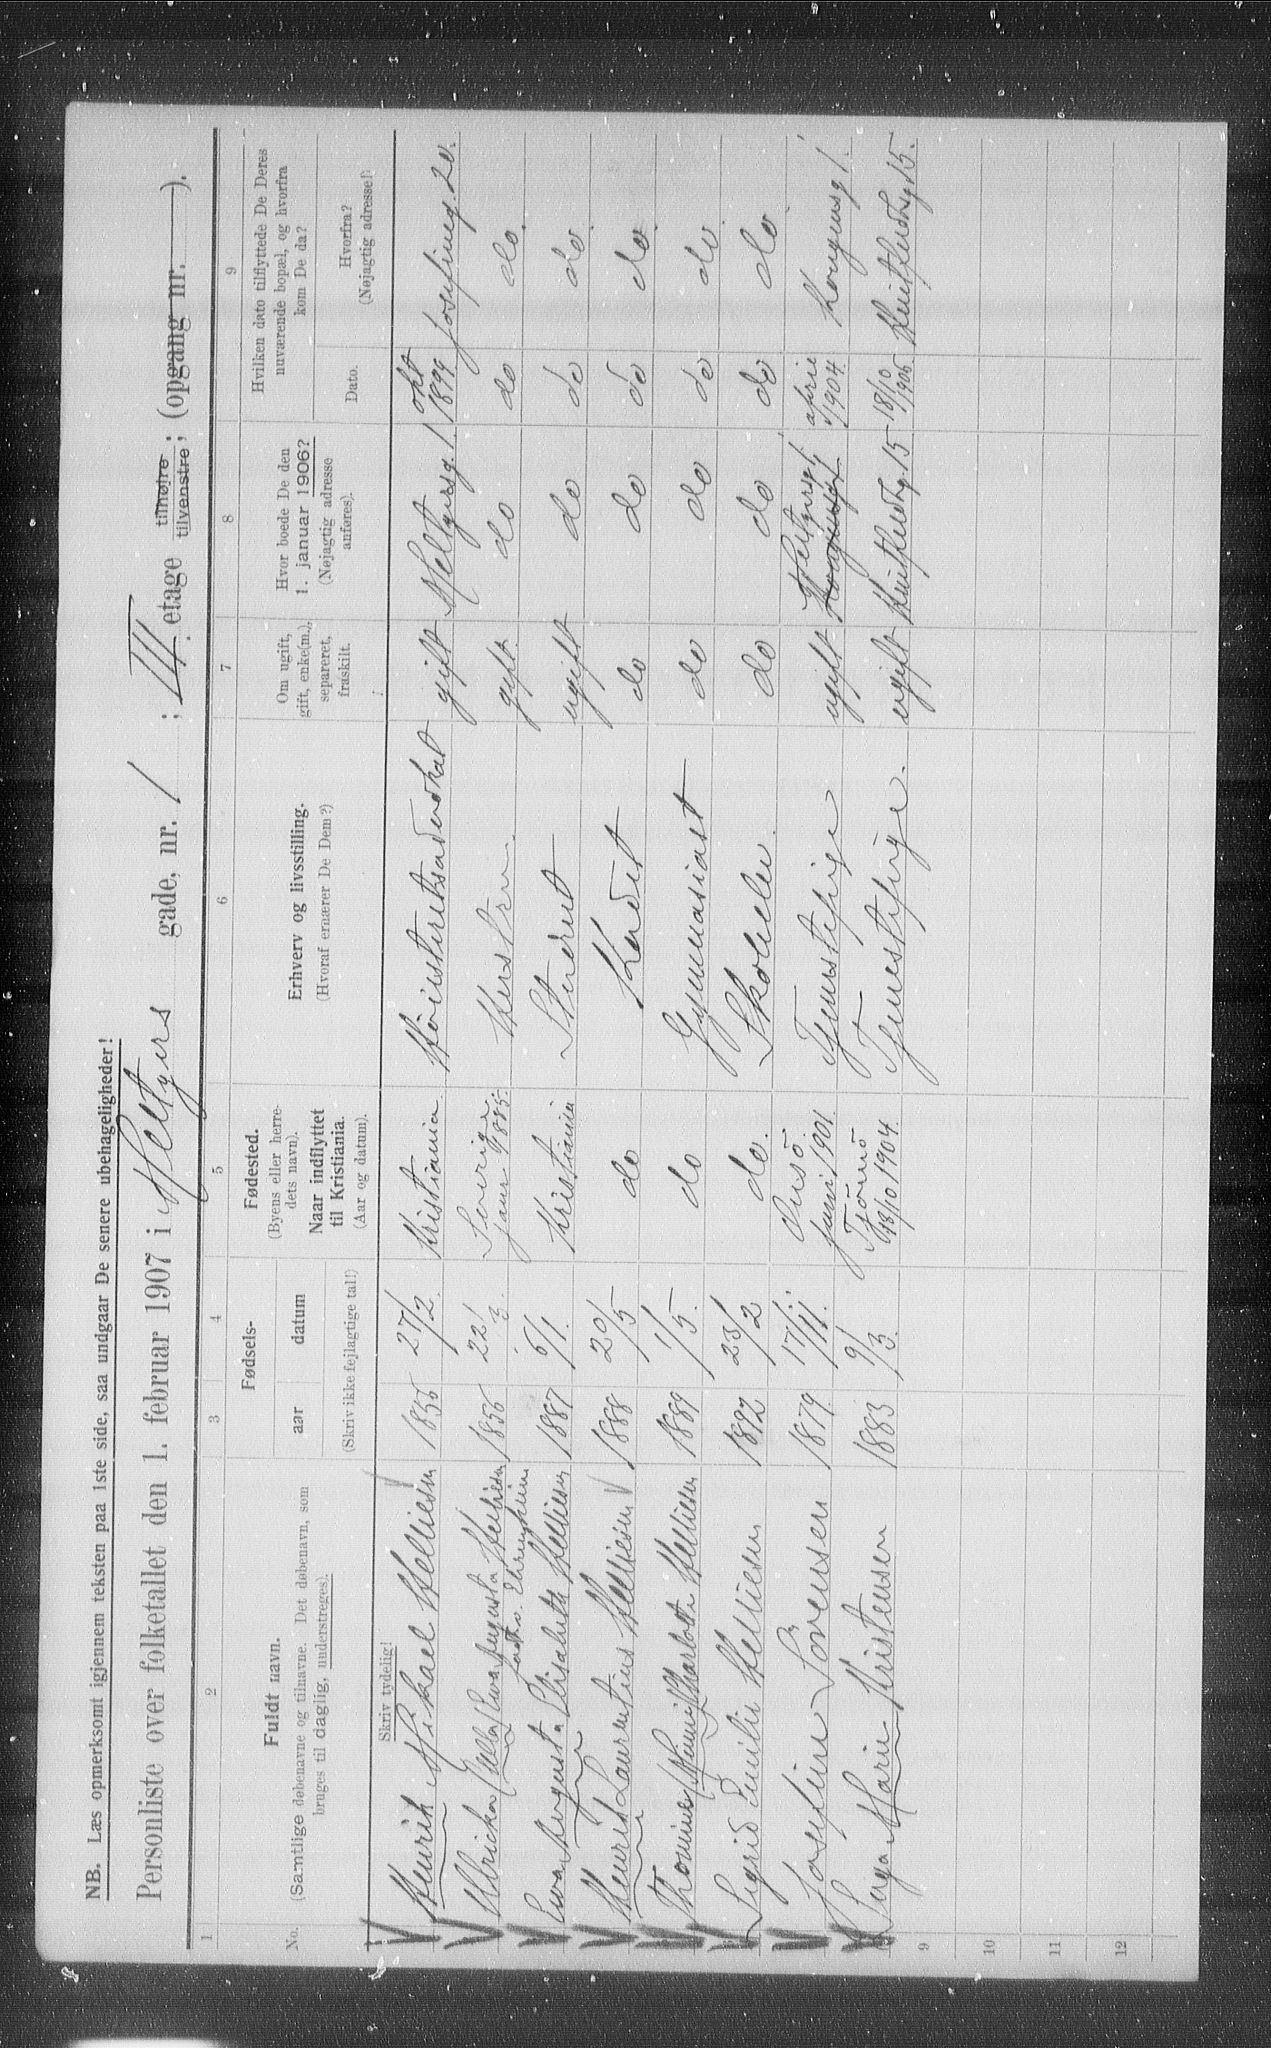 NB. Læs opmerksomt igjennem teksten paa 1ste side, saa undgaar De senere ubehageligheder!
Personliste over folketallet den 1. februar 1907 i Meltzers gade, nr. 1; III etage tilhøjre tilvenstre; (opgang nr. ).
1 2 3 4 5 6 7 8 9
No. Fuldt navn. (Samtlige døbenavne og tilnavne. Det døbenavn, som bruges til daglig, understreges).
Fødsels- aar datum (Skriv ikke fejlagtige tal!)
Fødested. (Byens eller herredets navn). Naar indflyttet til Kristiania. (Aar og datum).
Erhverv og livsstilling. (Hvoraf ernærer De Dem?)
Om ugift, gift, enke(m.), separeret, fraskilt.
Hvor boede De den 1. januar 1906? (Nøjagtig adresse anføres).
Hvilken dato tilflyttede De Deres nuværende bopæl, og hvorfra kom De da?
Dato. Hvorfra? (Nøjagtig adresse!)
Skriv tydelig!
Henrik Mikael Helliesen 1855 27/2. Kristiania Høiesteretsadvokat gift Meltzersg. 1. okt 1899 Josefineg. 20.
Ulricka (Ulla) Ewa Augusta Helliesen 1856 22/3. Sverige 1885. Husstru. gift. do do do.
Ewa Augusta Elisabeth Helliesen 1887 6/1. Kristiania Student ugift do do do.
Henrik Laurentius Helliesen 1888 20/5 do Kadet do do do do.
Thomine (Mimmi) Charlotte Helliesen 1889 1/5. do Gymnasiast do do do do.
Sigrid Emilie Helliesen 1892 23/2 do. Skoleelev. do do do do
Josefine Sørensen 1879. 17/11. Onsø Juni 1901. Tjenestepige ugift Meltzersg 1. april 1904.
Inga Marie Kristensen 1883 9/3. Tjømø 18/10 1904. Tjenestepige. ugift Huitfeldtsg. 15 18/10 1906. Huitfeldtsg. 15.
9
10
11
12